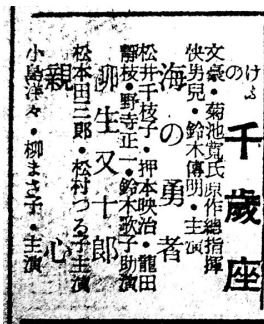 けふの
千歲座
文豪・菊池寬氏原作總指揮
快男兒・鈴木傳明・主演
海の勇者
松井千枝子・押本映治・龍田
靜枝・野寺正一・鈴木歌子助演
柳生又十郎
松本田三郎・松村つる子主演
親心
小島洋々・柳まさ子・主演